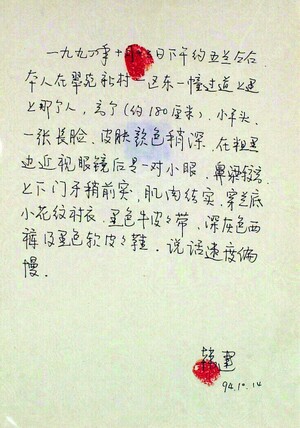 一九九四年十月 日下午约五点左右
本人在翠苑新村一区东一幢过道上遇
上那个人,高个(约180厘米),小平头,
一张长脸,皮肤颜色稍深,在粗黑
边近视眼镜后是一对小眼,鼻梁较高,
上下门牙稍前突,肌肉结实,穿兰底
小花纹衬衣,黑色牛皮皮带,深灰色西
裤及黑色软皮皮鞋,说话速度偏
慢。
94.10.14